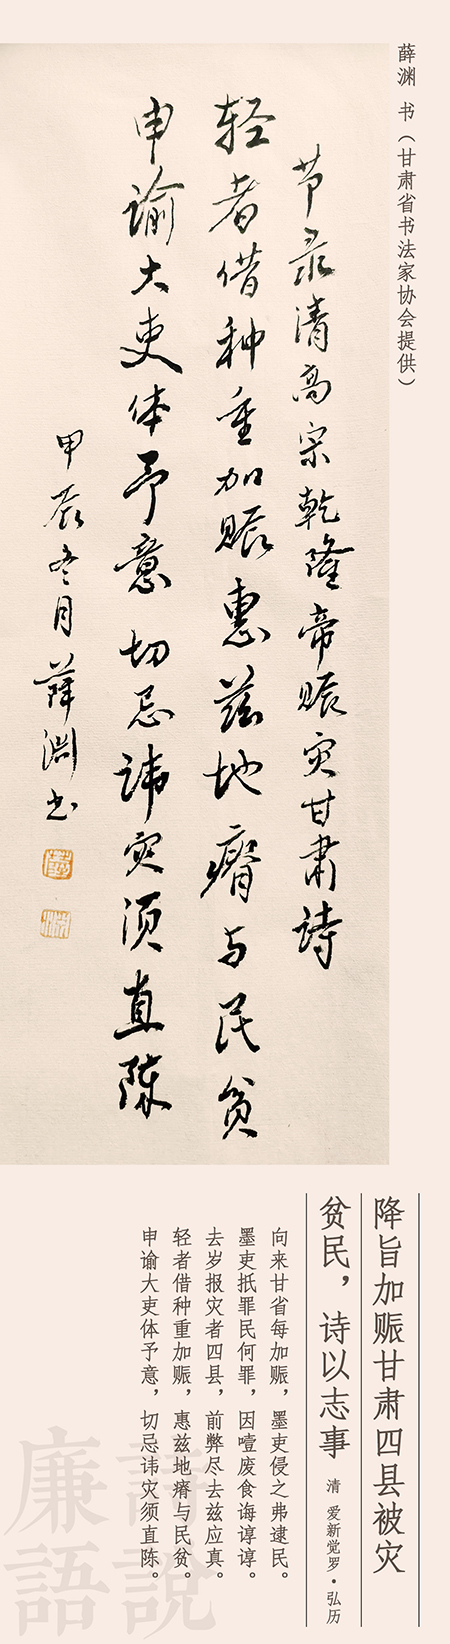 薛渊 书（甘肃省书法家协会提供）
节录清高宗乾隆帝赈灾甘肃诗
轻者借种重加赈惠兹地瘠与民贫
申谕大吏体予意切忌讳灾须直陈
甲辰冬月薛渊书
降旨加赈甘肃四县被灾
贫民，诗以志事 清 爱新觉罗·弘历
向来甘省每加赈，墨吏侵之弗逮民。
墨吏抵罪民何罪，因噎废食诲谆谆。
去岁报灾者四县，前弊尽去兹应真。
轻者借种重加赈，惠兹地瘠与民贫。
申谕大吏体予意，切忌讳灾须直陈。
詩說
廉語